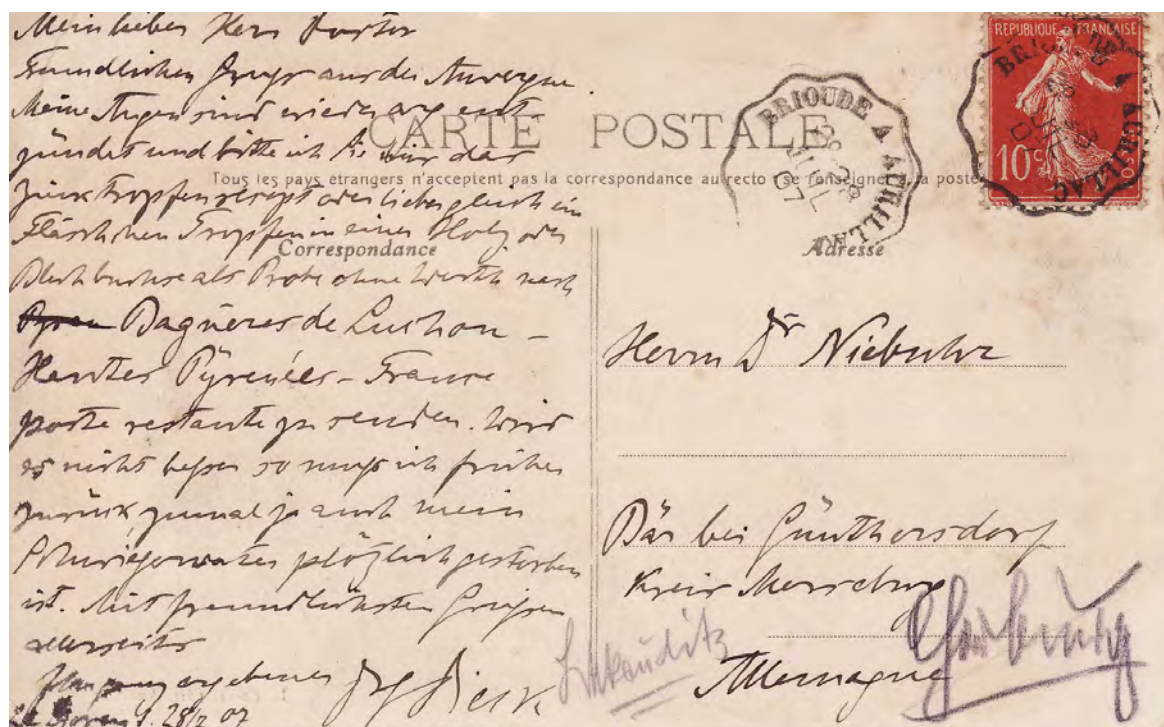 Mein lieber Herr Doctor
Freundlichen Gruß aus der Auvergne.
Meine Augen sind wieder arg ent-
zündet und bitte ich Sie mir das
Zinktropfenrezept oder lieber gleich ein
Fläschchen Tropfen in einer Holz oder
Blechbuchse als Probe ohne Werth nach
Bagnères de Luchon –
Hautes Pyrenées – France
poste restante zu senden. Wird
es nicht besser so muß ich früher
zurück zumal ja auch mein
Schwiegervater plötzlich gestorben
ist. Mit freundlichsten Grüßen
allerseits
Ihr ganz ergebener
28/7 07
CARTE POSTALE
Tous les pays étrangers n'acceptent pas la correspondance au recto se renseigner à la poste
Correspondance
Adresse
BRIOUDE A AURILLAC
28
JUIL
07
REPUBLIQUE FRANÇAISE
10c
BRIOUDE A AURILLAC
Herrn Dr Niebuhr
bei Günthersdorf
Kreis Merseburg
Allemagne